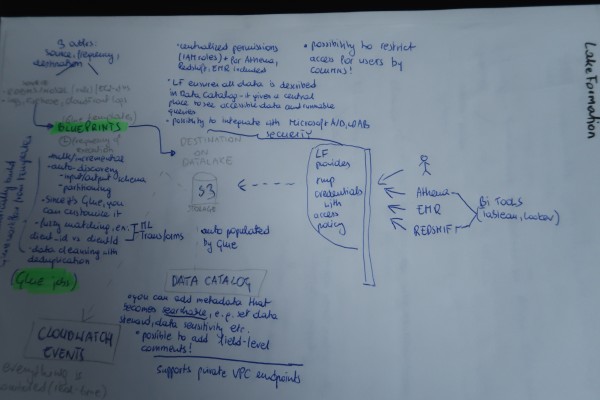 LakeFormation
3 inputs:
source, frequency,
destination
BLUEPRINTS
- bulk/incremental
- auto-discovery
- input/output schema
- partitioning
- since it's Glue, you
can customize it
- fuzzy matching, e.x.
client_id vs clientId
- data cleansing with
deduplication
ML
Transforms
(Glue jobs)
CLOUDWATCH
EVENTS
everything is
• centralized permissions
(IAM roles) • for Athena,
Redshift, EMR included
• LF ensures all data is described
in Data Catalog - it gives a central
place to see accessible data and runnable
queries
• possibility to integrate with Microsoft AD, LDAP
SECURITY
• possibility to restrict
access for users by
columns!
DESTINATION
ON
DATALAKE
S3
STORAGE
• auto populated
by Glue
LF
provides
tmp
credentials
with
access
policy
Athena
EMR
REDSHIFT
BI Tools
(Tableau, Looker)
DATA CATALOG
• you can add metadata that
becomes searchable, e.g. set data
steward, data sensitivity etc.
• possible to add field-level
comments!
supports private VPC endpoints